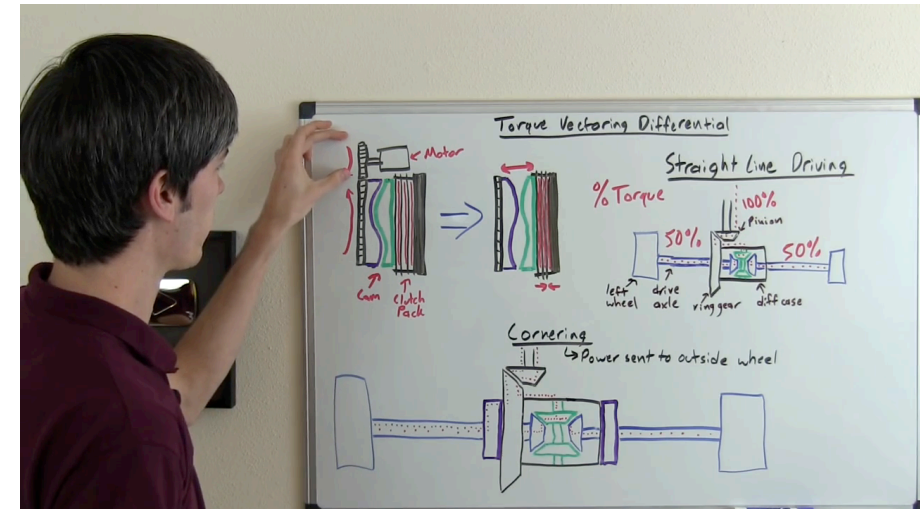 Torque Vectoring Differential
Motor
Cam
Clutch
Pack
Straight Line Driving
% Torque
100%
Pinion
50%
50%
left
wheel
drive
axle
ring gear
diff case
Cornering
↳ Power sent to outside wheel